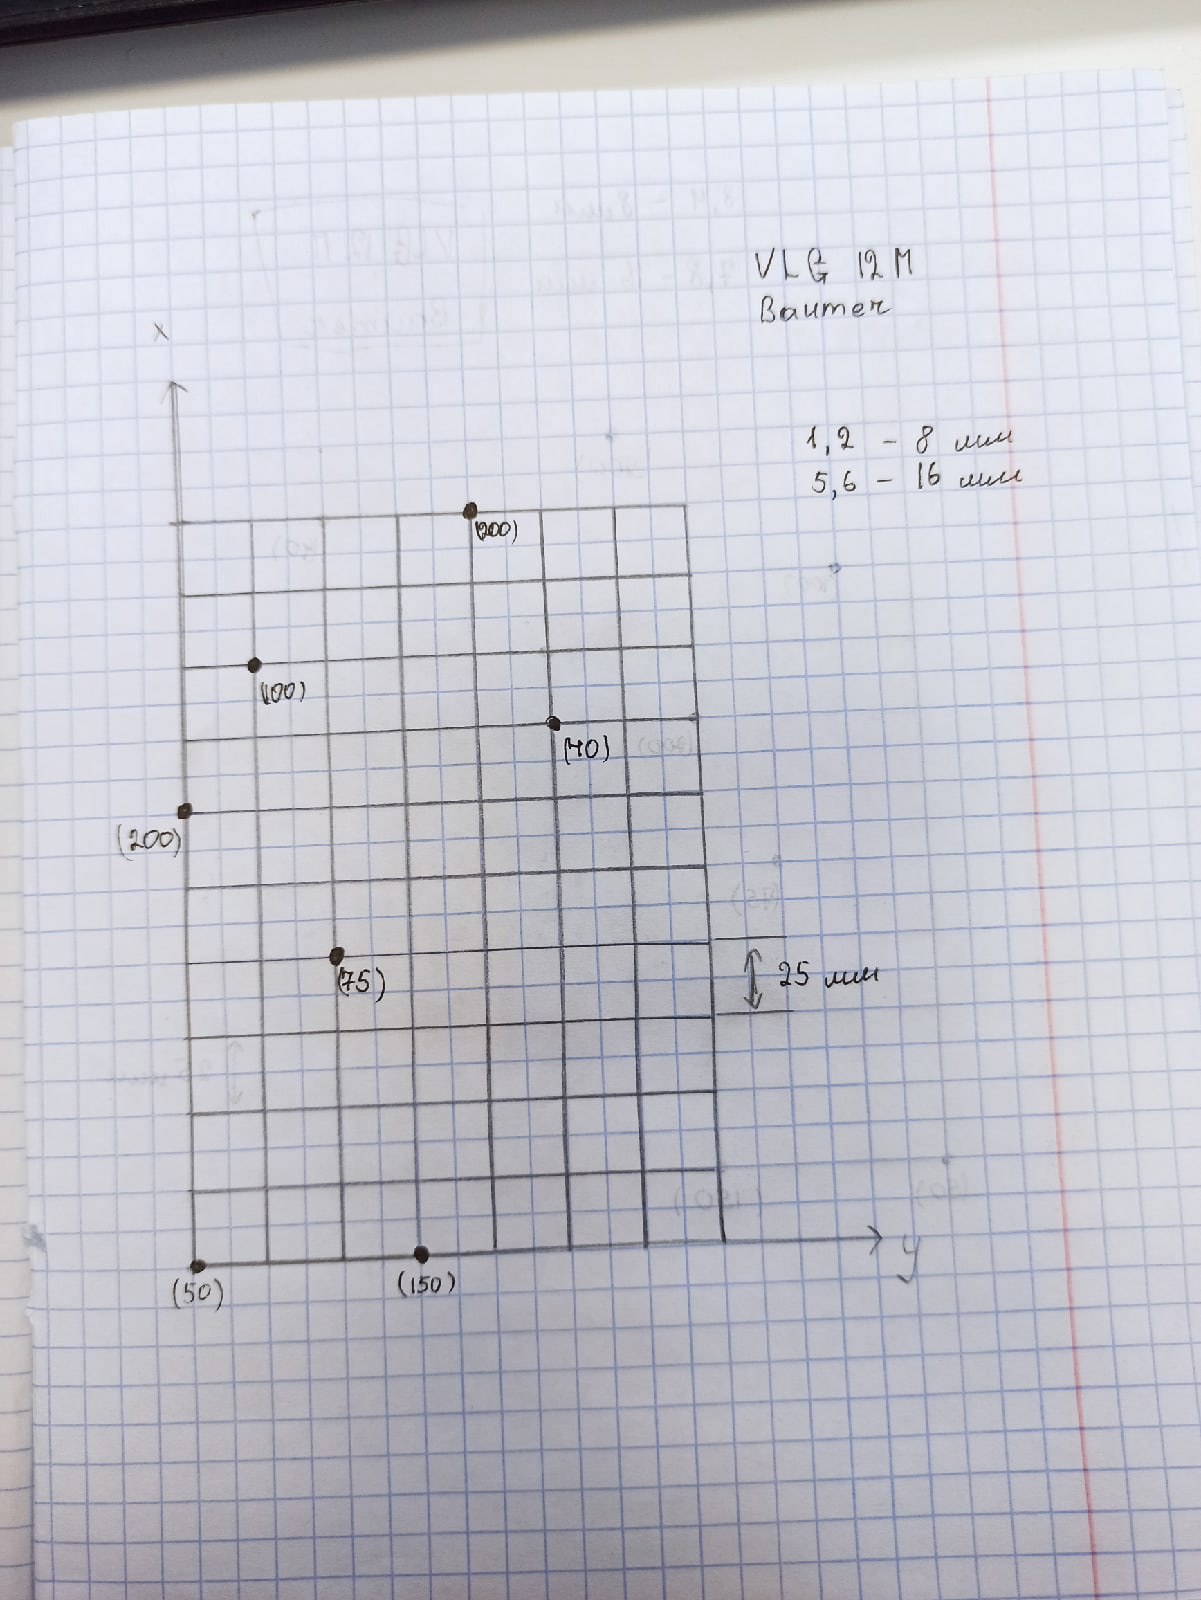 VLG 12M
Baumer
x
1,2 - 8 мм
5,6 - 16 мм
(200)
(100)
(40)
(200)
(75)
25 мм
y
(50)
(150)